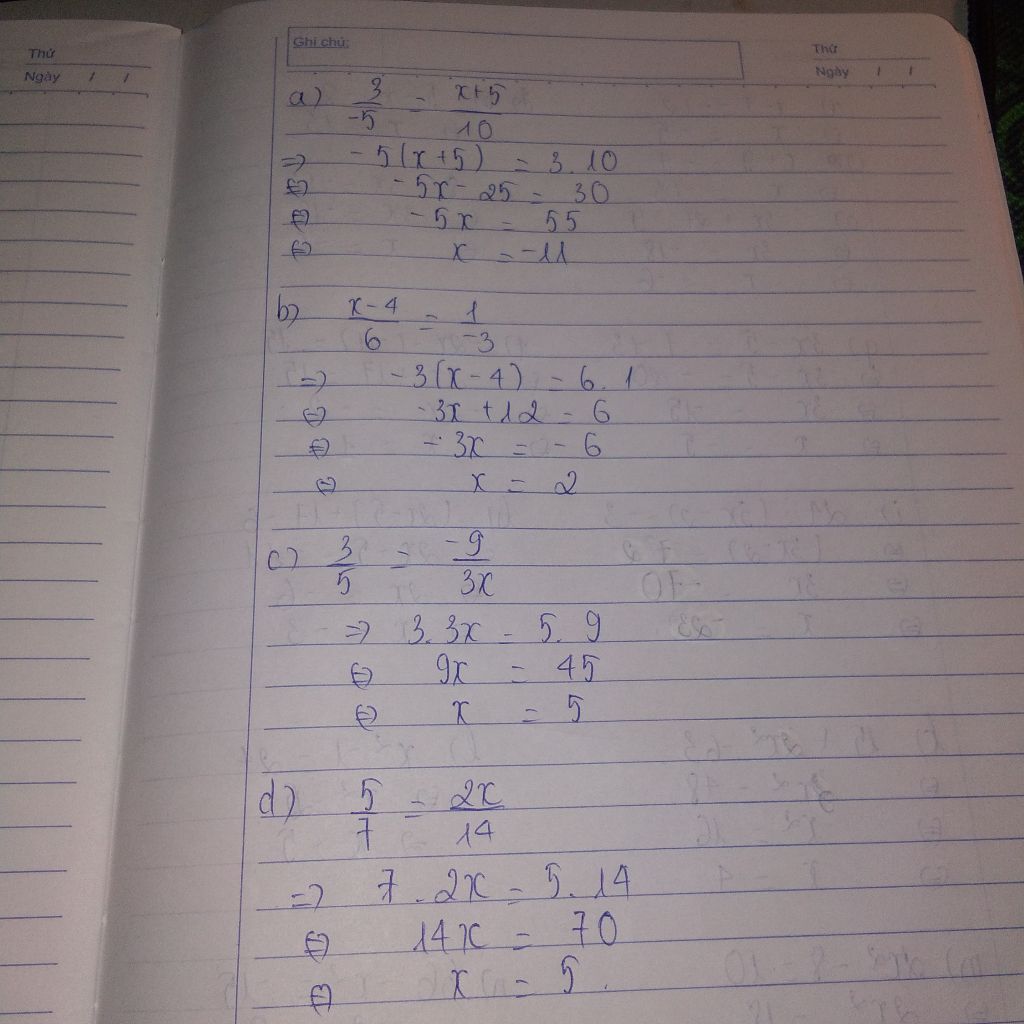 Thứ
Ngày / /
Ghi chú:
Thứ
Ngày / /
a) 3/-5 = x+5/10
=> -5(x+5) = 3.10
<=> -5x - 25 = 30
<=> -5x = 55
<=> x = -11
b) x-4/6 = 1/-3
=> -3(x-4) = 6.1
<=> -3x + 12 = 6
<=> -3x = -6
<=> x = 2
c) 3/5 = -9/3x
=> 3.3x = 5.9
<=> 9x = 45
<=> x = 5
d) 5/7 = 2x/14
=> 7.2x = 5.14
<=> 14x = 70
<=> x = 5.